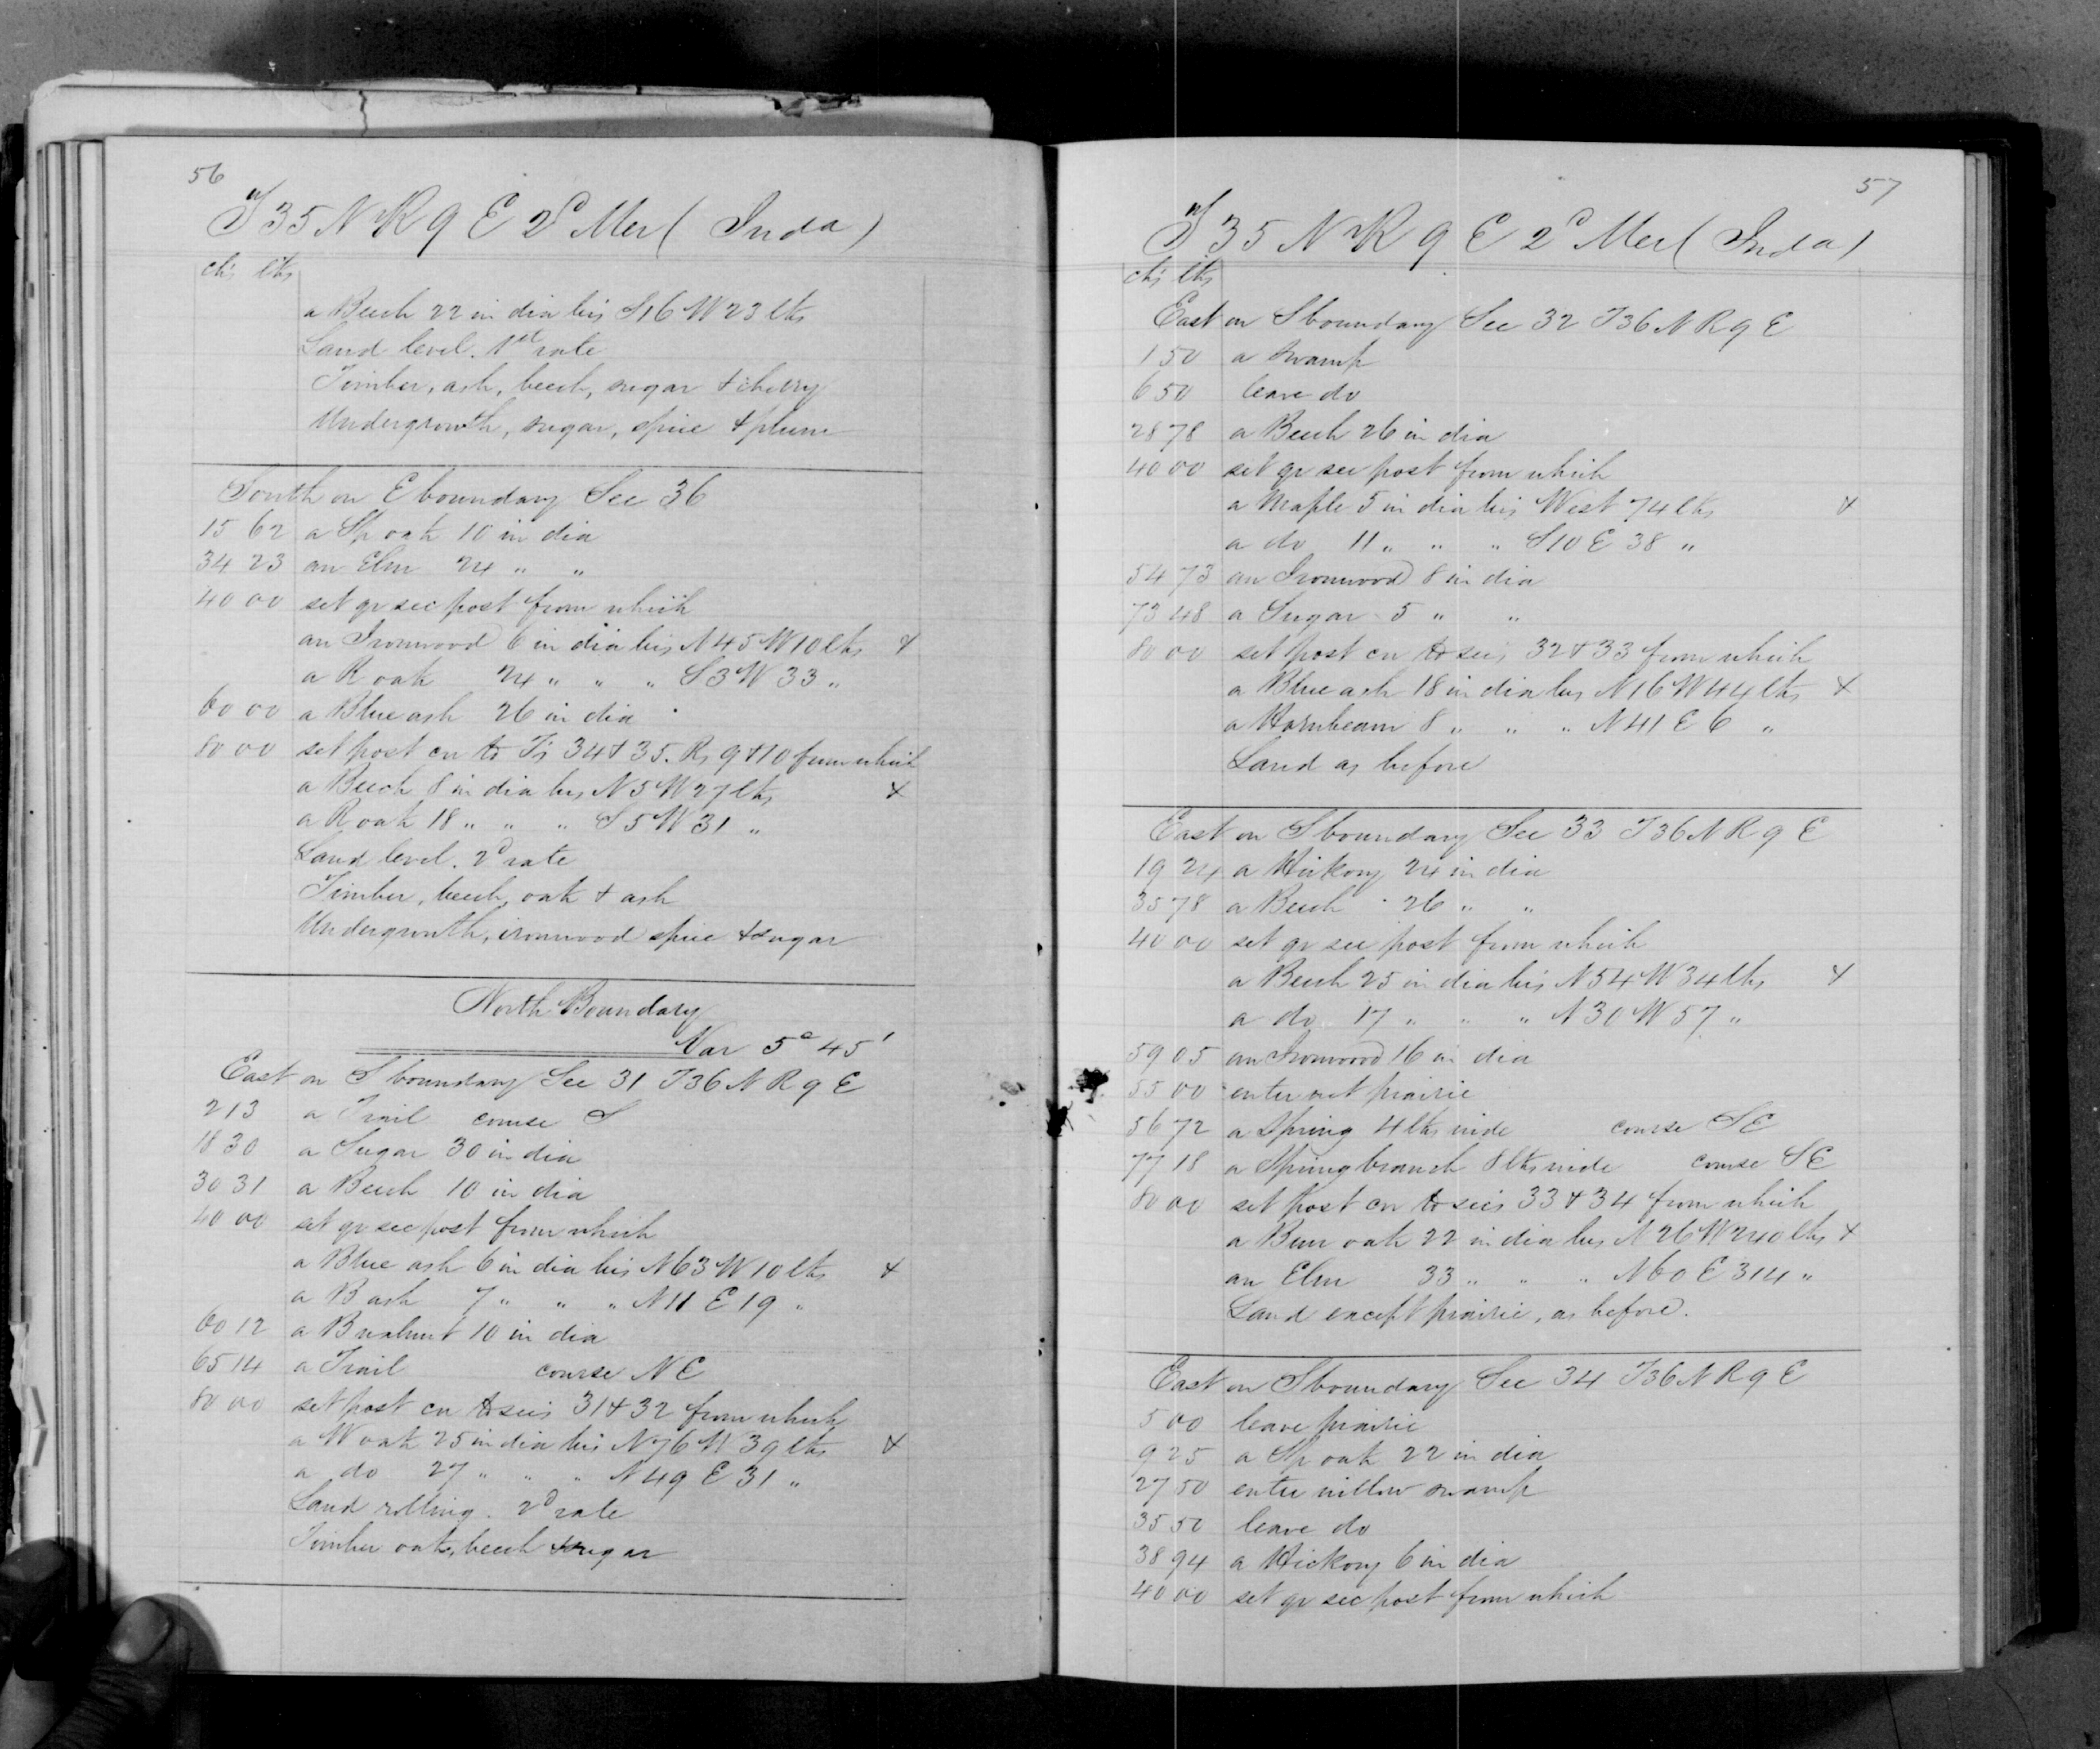 56
T 35 N R 9 E 2d Mer ( Inda )
chs lks
a Beech 22 in dia brs S16 W 23 lks
Land level. 1st rate
Timber, ash, beech, sugar & cherry
Undergrowth, sugar, spice & plum
South on E boundary Sec 36
15 62 a Sp oak 10 in dia
34 23 an Elm 24 " "
40 00 set qr sec post from which
an Ironwood 6 in dia brs N 45 W 10 lks x
a R oak 24 " " " S 3 W 33 "
60 00 a Blue ash 26 in dia
80 00 set post cor to Ts 34 & 35. Rs 9 & 10 from which
a Beech 8 in dia brs N 5 W 27 lks x
a R oak 18 " " " S 5 W 31 "
Land level. 2d rate
Timber, beech, oak & ash
Undergrowth, ironwood spice & sugar
North Boundary
Var 5° 45'
East on S boundary Sec 31 T36 N R 9 E
2 13 a Trail course S
18 30 a Sugar 30 in dia
30 31 a Beech 10 in dia
40 00 set qr sec post from which
a Blue ash 6 in dia brs N 63 W 10 lks x
a B ash 7 " " " N 11 E 19 "
60 12 a B walnut 10 in dia
65 14 a Trail course N E
80 00 set post cor to secs 31 & 32 from which
a W oak 25 in dia brs N 76 W 39 lks x
a do 27 " " " N 49 E 31 "
Land rolling. 2d rate
Timber oak, beech & sugar
57
T 35 N R 9 E 2d Mer ( Inda )
chs lks
East on S boundary Sec 32 T36 N R 9 E
1 50 a swamp
6 50 leave do
28 78 a Beech 26 in dia
40 00 set qr sec post from which
a Maple 5 in dia brs West 74 lks x
a do 11 " " " S 10 E 38 "
54 73 an Ironwood 8 in dia
73 48 a Sugar 5 " "
80 00 set post cor to secs 32 & 33 from which
a Blue ash 18 in dia brs N 16 W 44 lks x
a Hornbeam 8 " " " N 41 E 6 "
Land as before
East on S boundary Sec 33 T36 N R 9 E
19 24 a Hickory 24 in dia
35 78 a Beech 26 " "
40 00 set qr sec post from which
a Beech 25 in dia brs N 54 W 34 lks x
a do 17 " " " N 30 W 57 "
59 05 an Ironwood 16 in dia
55 00 enter wet prairie
56 72 a Spring 4 lks wide course S E
77 18 a Spring branch 8 lks wide course S E
80 00 set post cor to secs 33 & 34 from which
a Burr oak 22 in dia brs N 26 W 240 lks x
an Elm 33 " " " N 60 E 314 "
Land except prairie, as before.
East on S boundary Sec 34 T36 N R 9 E
5 00 leave prairie
9 25 a Sp oak 22 in dia
27 50 enter willow swamp
35 50 leave do
38 94 a Hickory 6 in dia
40 00 set qr sec post from which